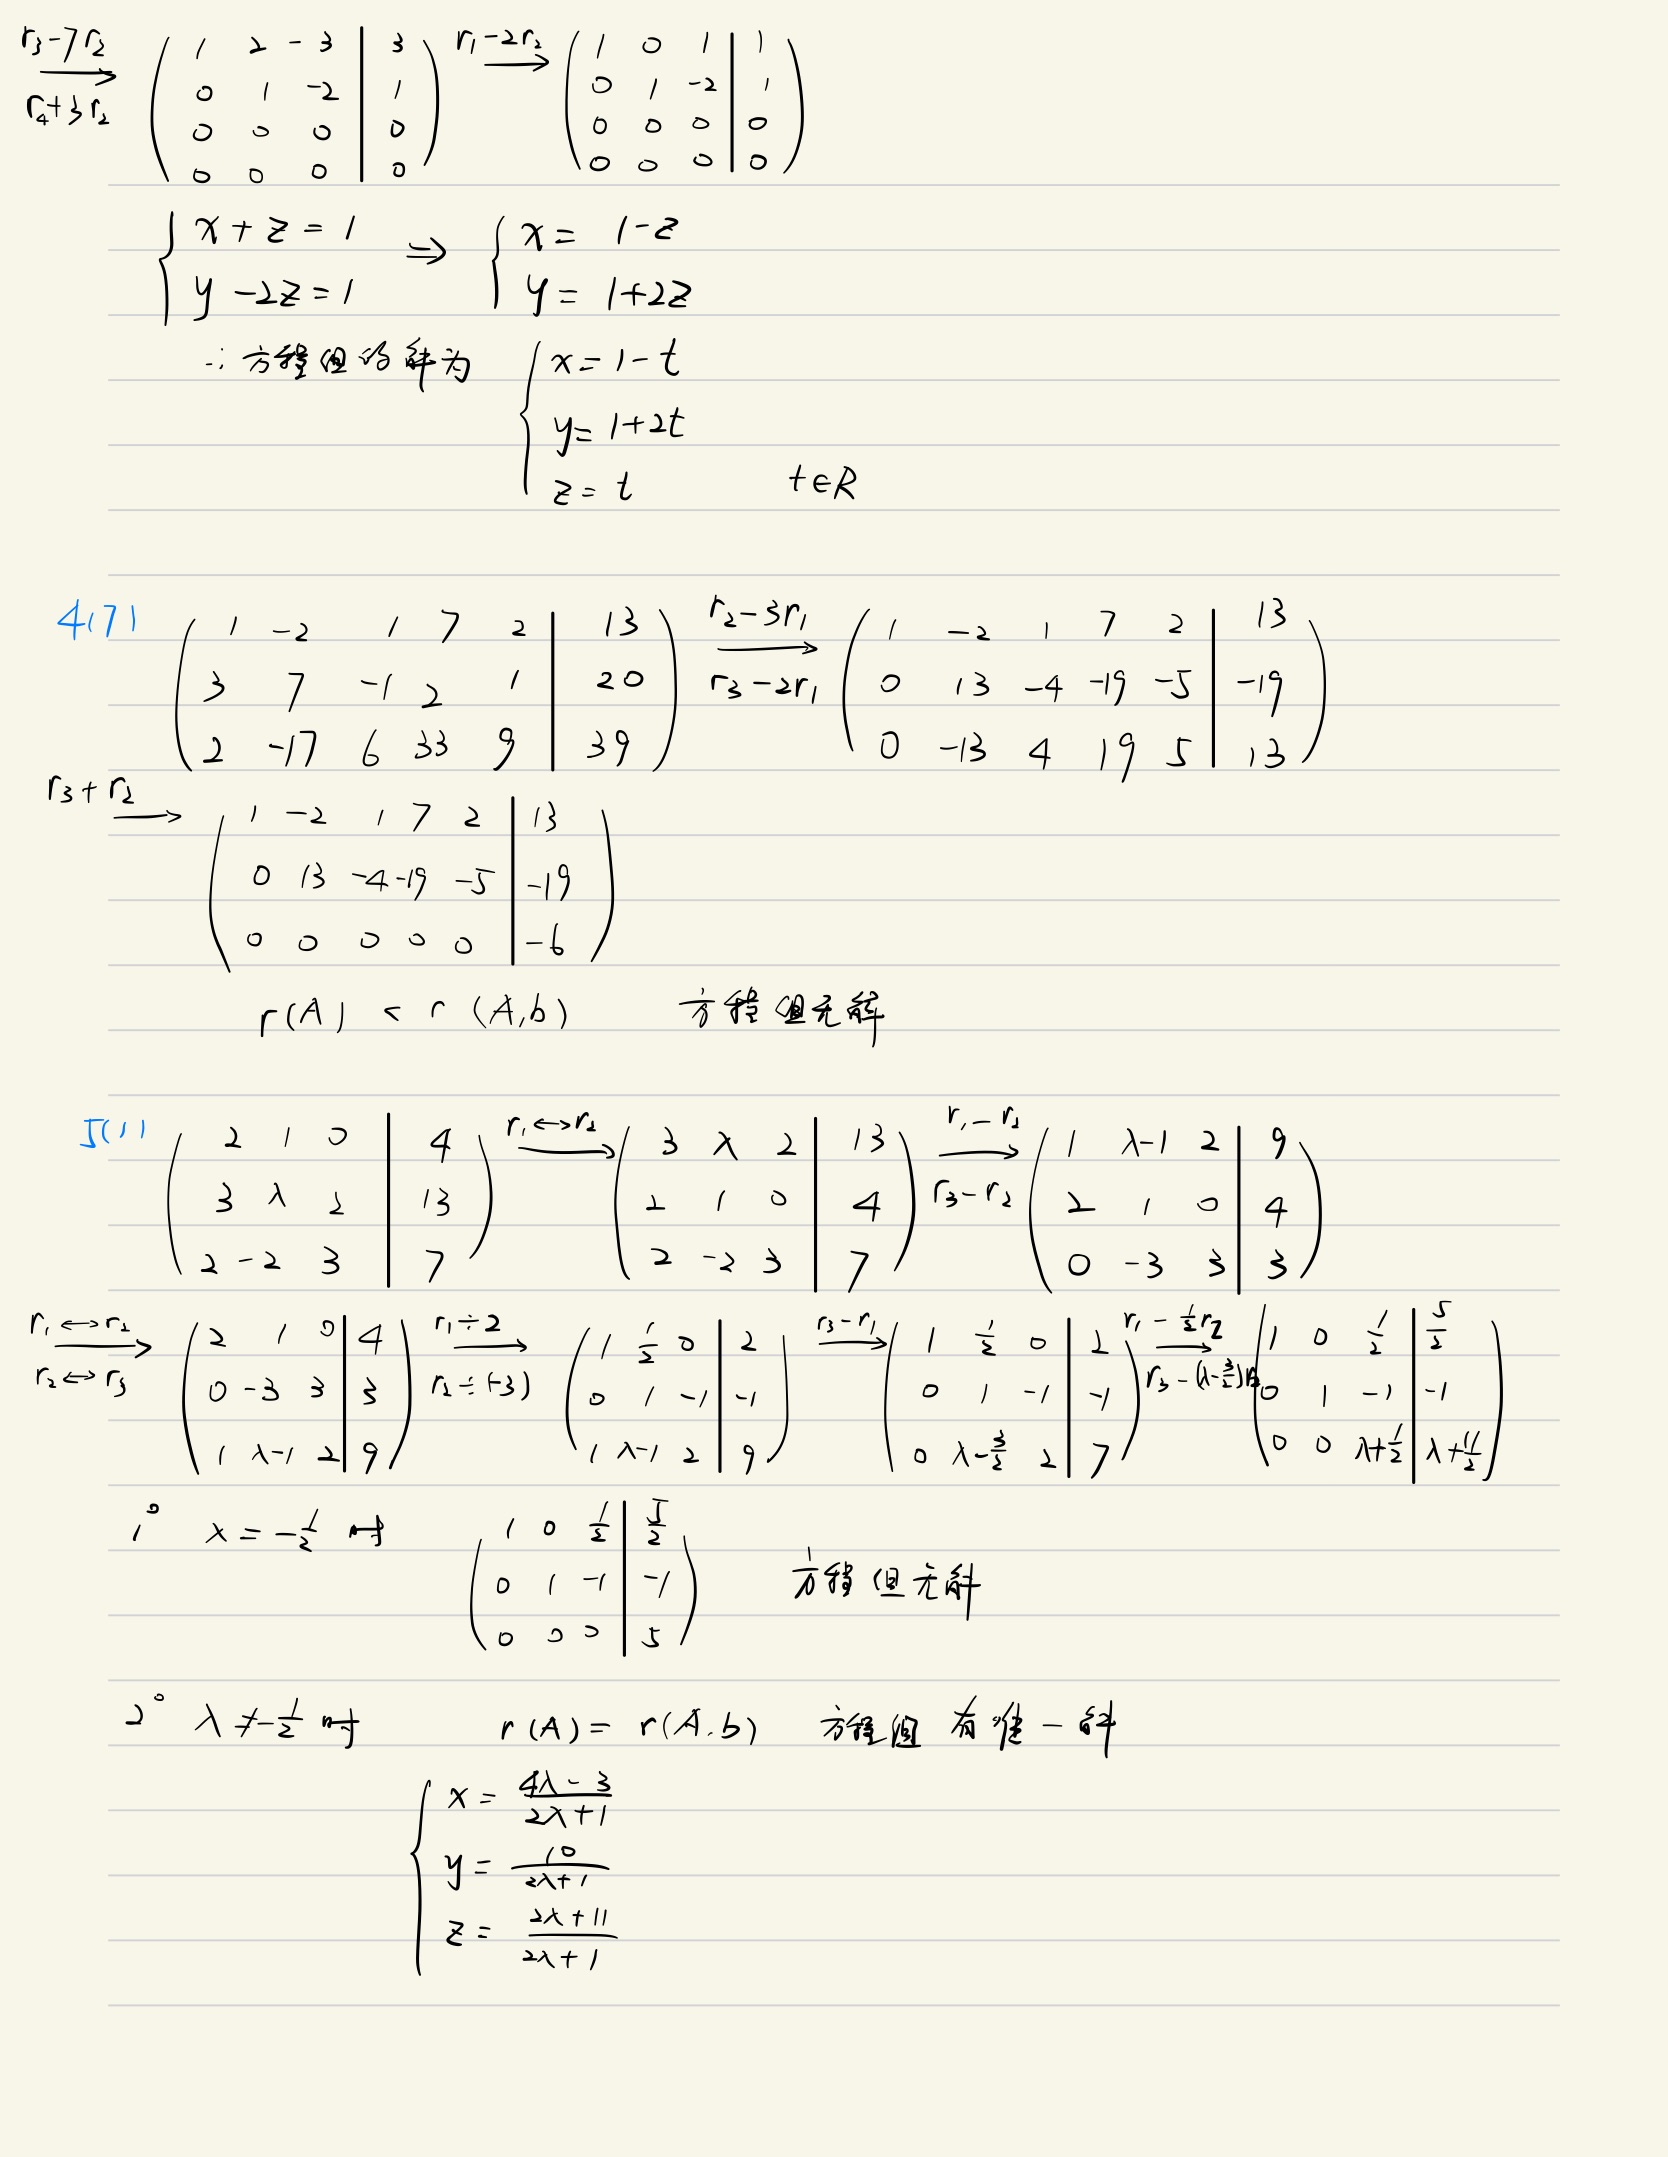 r₃-7r₂ r₄+3r₂ → ( 1 2 -3 | 3 ; 0 1 -2 | 1 ; 0 0 0 | 0 ; 0 0 0 | 0 ) r₁-2r₂ → ( 1 0 1 | 1 ; 0 1 -2 | 1 ; 0 0 0 | 0 ; 0 0 0 | 0 )
{ x+z=1 ; y-2z=1 ⇒ { x= 1-z ; y= 1+2z
∴ 方程组的解为 { x=1-t ; y=1+2t ; z=t t∈R
4(7) ( 1 -2 1 7 2 | 13 ; 3 7 -1 2 1 | 20 ; 2 -17 6 33 9 | 39 ) r₂-3r₁ r₃-2r₁ → ( 1 -2 1 7 2 | 13 ; 0 13 -4 -19 -5 | -19 ; 0 -13 4 19 5 | 13 )
r₃+r₂ → ( 1 -2 1 7 2 | 13 ; 0 13 -4 -19 -5 | -19 ; 0 0 0 0 0 | -6 )
r(A) < r(A,b) 方程组无解
5(1) ( 2 1 0 | 4 ; 3 λ 2 | 13 ; 2 -2 3 | 7 ) r₁↔r₂ → ( 3 λ 2 | 13 ; 2 1 0 | 4 ; 2 -2 3 | 7 ) r₁-r₂ r₃-r₂ → ( 1 λ-1 2 | 9 ; 2 1 0 | 4 ; 0 -3 3 | 3 )
r₁↔r₂ r₂↔r₃ → ( 2 1 0 | 4 ; 0 -3 3 | 3 ; 1 λ-1 2 | 9 ) r₁÷2 r₂÷(-3) → ( 1 1/2 0 | 2 ; 0 1 -1 | -1 ; 1 λ-1 2 | 9 ) r₃-r₁ → ( 1 1/2 0 | 2 ; 0 1 -1 | -1 ; 0 λ-3/2 2 | 7 ) r₁-1/2r₂ r₃-(λ-3/2)r₂ → ( 1 0 1/2 | 5/2 ; 0 1 -1 | -1 ; 0 0 λ+1/2 | λ+11/2 )
1° λ=-1/2 时 ( 1 0 1/2 | 5/2 ; 0 1 -1 | -1 ; 0 0 0 | 5 ) 方程组无解
2° λ≠-1/2 时 r(A)= r(A,b) 方程组有唯一解
{ x = (4λ-3)/(2λ+1)
y = 10/(2λ+1)
z = (2λ+11)/(2λ+1)